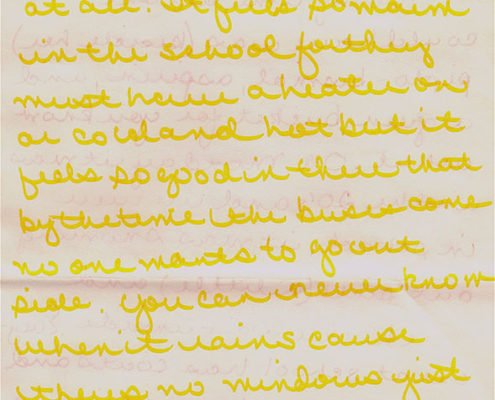 at all. It feels so warm
in the school for they
must have a heater on
or cord and hot but it
feels so good in there that
by the time the buses come
no one wants to go out
side. You can never know
when it rains cause
theres no windows just